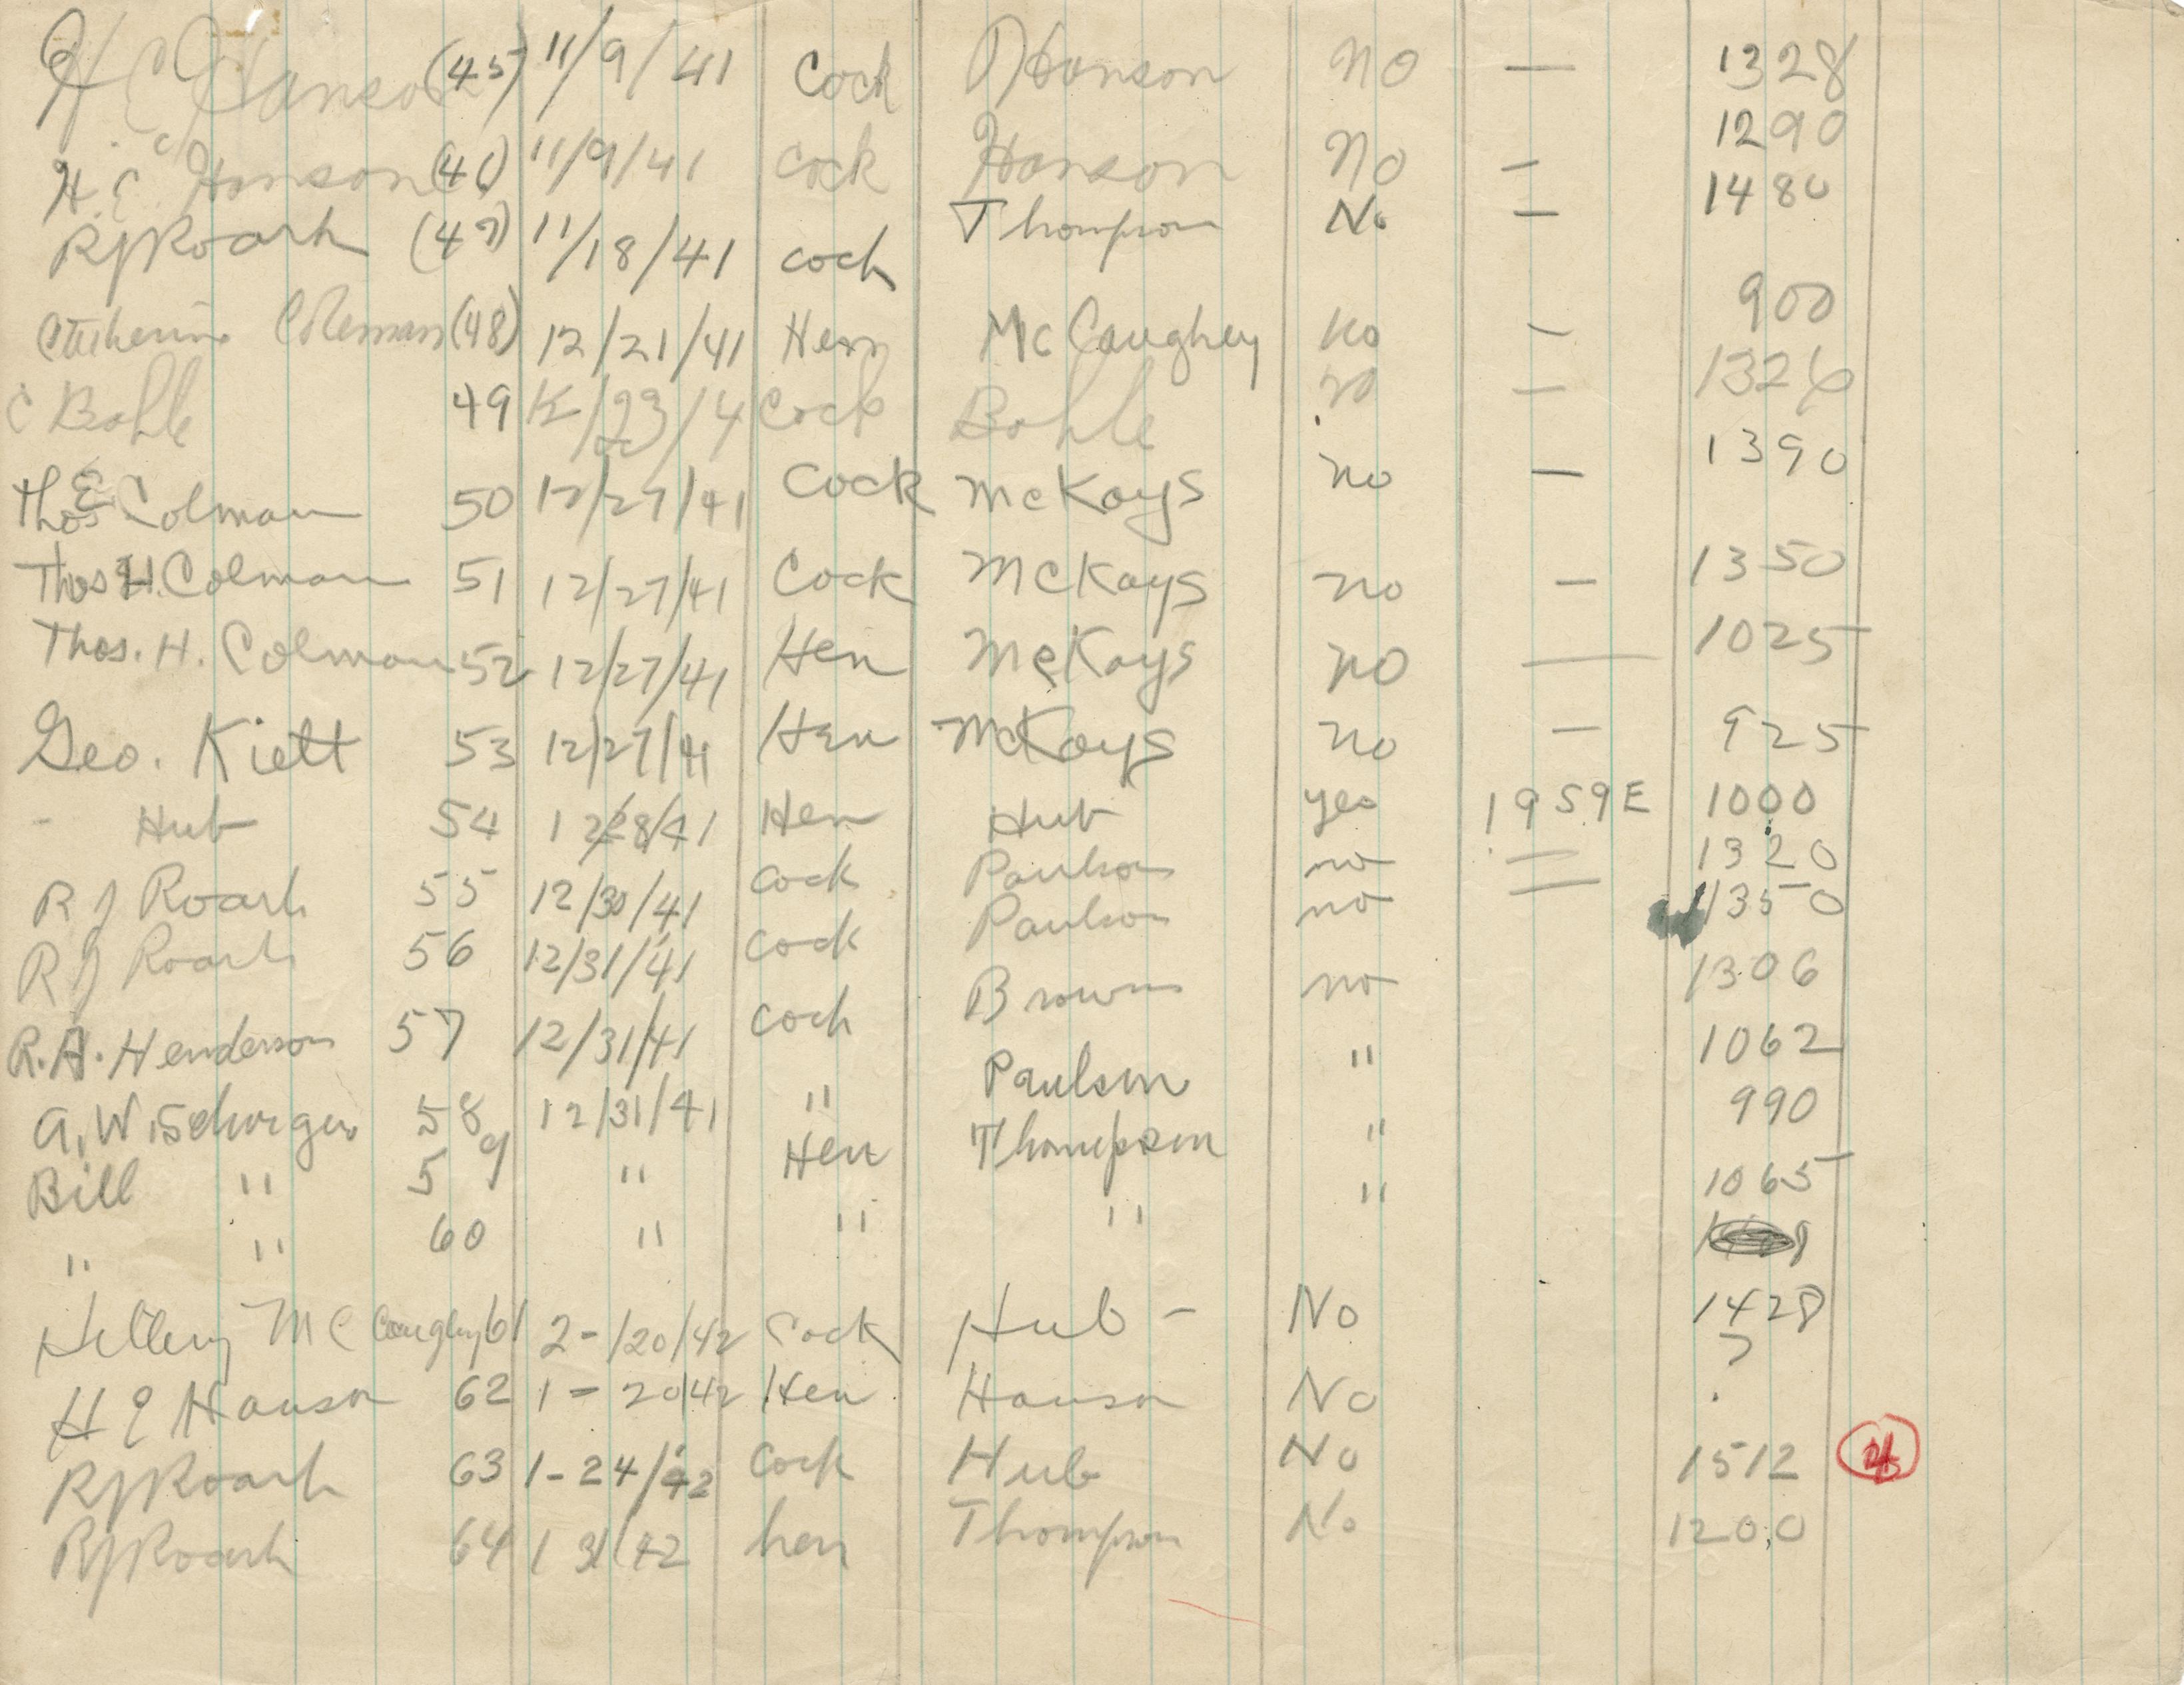 H C Hanson (45) 11/9/41 Cock Hanson NO — 1328
H. C. Hanson (46) 11/9/41 Cock Hanson No — 1290
RJ Roark (47) 11/18/41 cock Thompson No — 1480
Catherine Coleman (48) 12/21/41 Hen McCaughey No — 900
C Bohle 49 12/23/4 Cock Bohle no — 1326
Thos E Colman 50 12/27/41 Cock McKays no — 1390
Thos H. Colman 51 12/27/41 Cock McKays no — 1350
Thos. H. Colman 52 12/27/41 Hen McKays no — 1025
Geo. Kiett 53 12/27/41 Hen McKays no — 925
- Hub 54 12/28/41 Hen Hub yes 1959E 1000
R J Roark 55 12/30/41 cock Paulson no — 1320
R J Roark 56 12/31/41 cock Paulson no — 1350
R.A. Henderson 57 12/31/41 cock Brown no 1306
A.W. Schorger 58 12/31/41 " Paulson " 1062
Bill " 59 " Hen Thompson " 990
" " 60 " " " " 1065
Hillery McCaughey 61 2-/20/42 Cock Hub - No 1428
H C Hanson 62 1-20/42 Hen Hanson No ?
RJ Roark 63 1-24/42 cock Hub No 1512
RJ Roark 64 1 31/42 hen Thompson No 1200